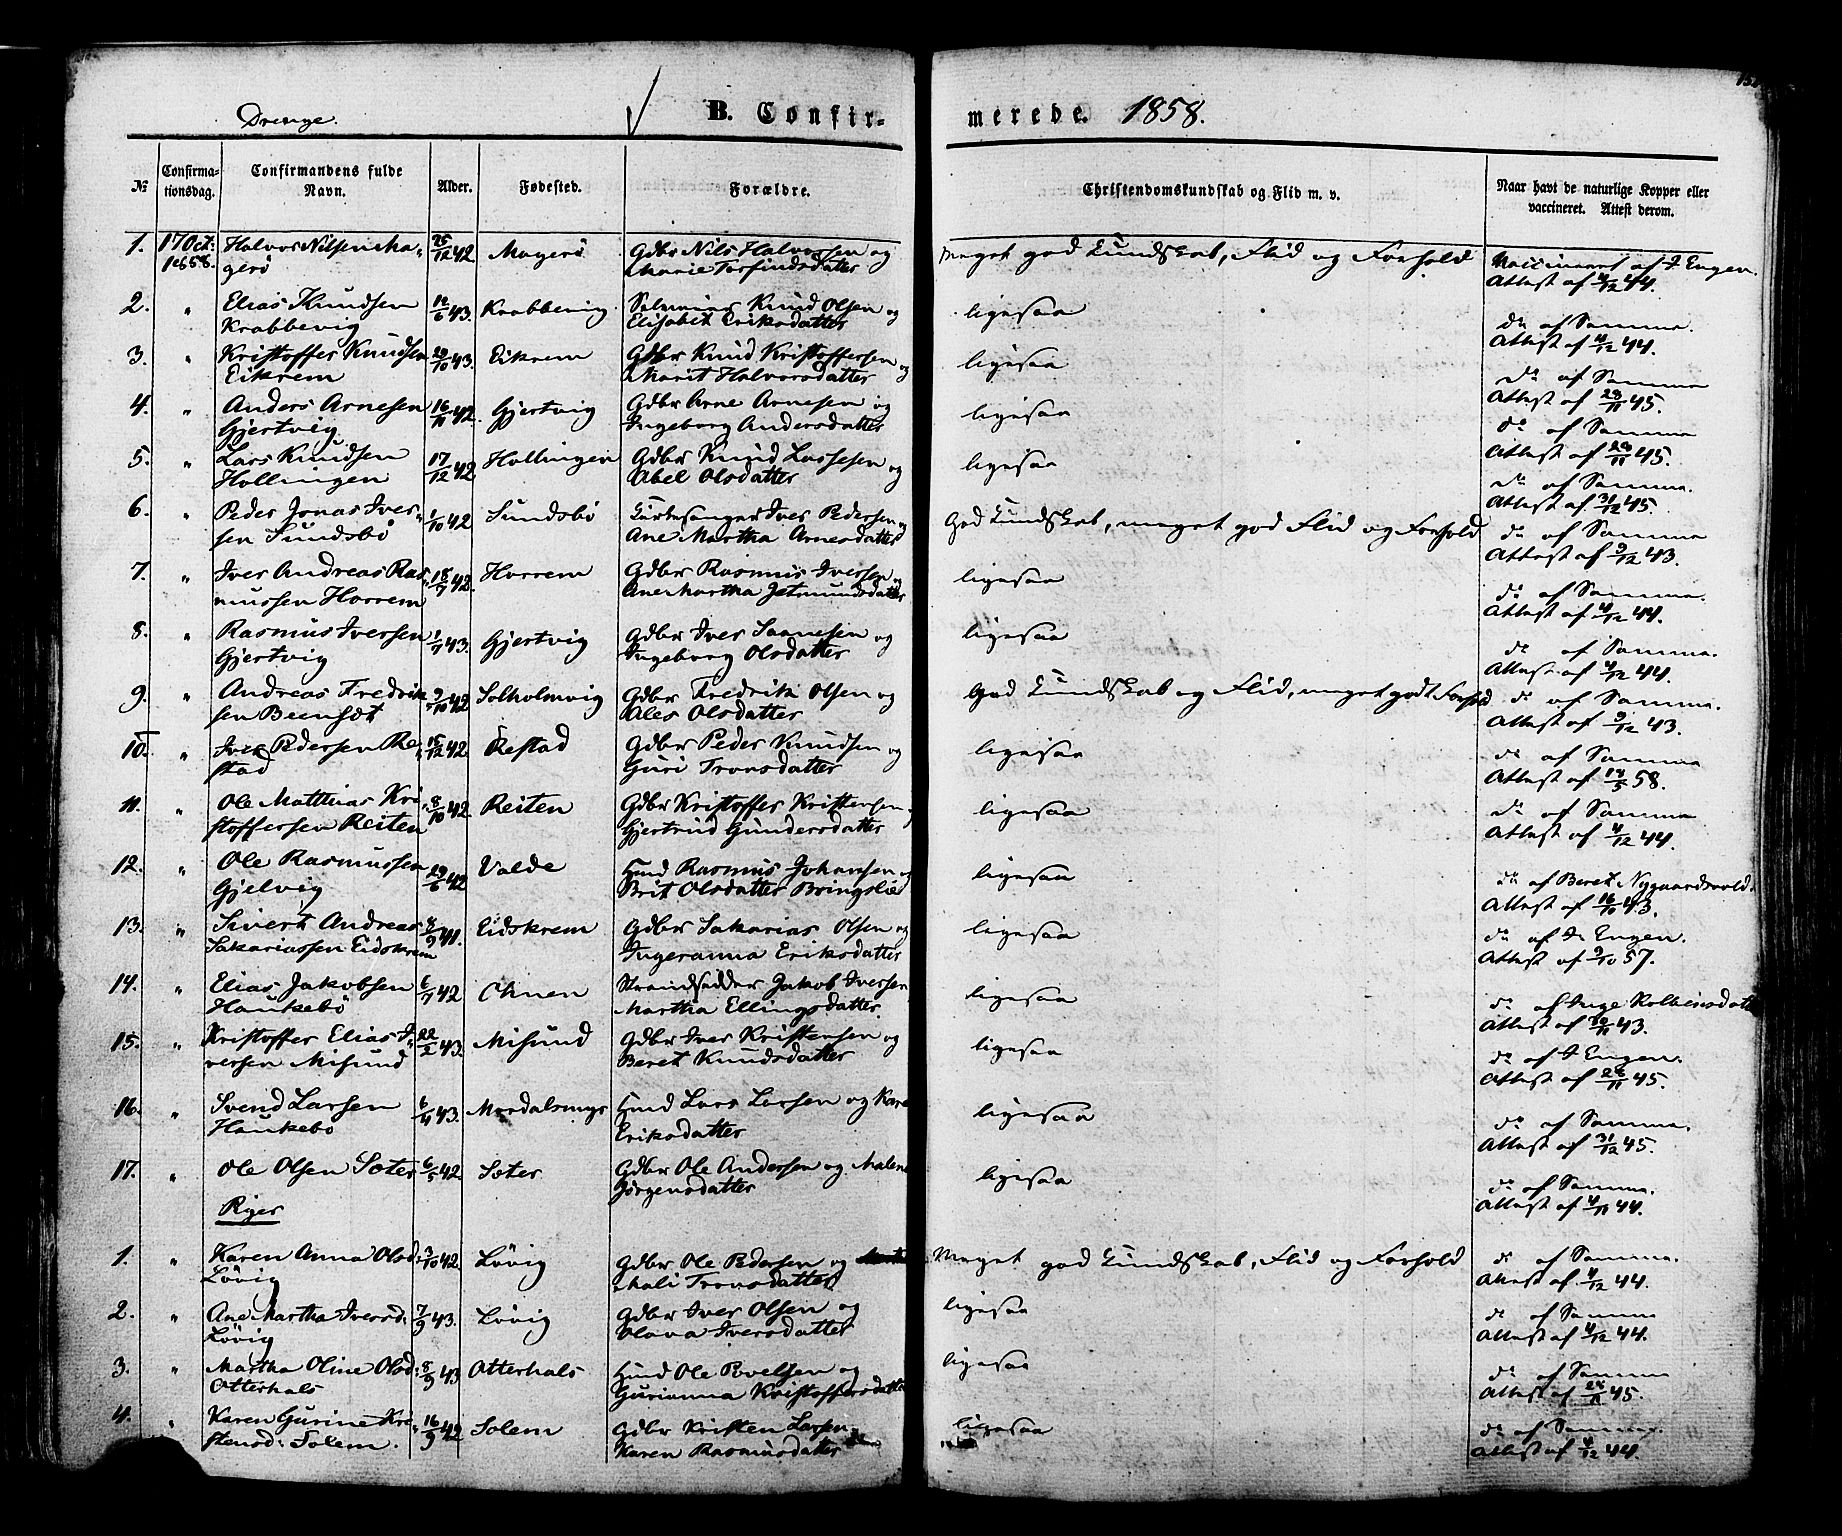 152
Drenge.
B. Confir-
merede. 1858.
№
Confirma-
tionsdag.
Confirmandens fulde
Navn.
Alder.
Fødested.
Forældre.
Christendomskundskab og Flid m. v.
Naar havt de naturlige Kopper eller
vaccineret. Attest derom.
1. 17 Oct: 1858. Halvor Nilsen Ma-
gerö
25/12 42 Magerö Gdbr Nils Halvorsen og
Marie Torfindsdatter
Meget god Kundskab, Flid og Forhold
Vaccineret af J Engen.
Attest af 4/12 44.
2. " Elias Knudsen
Krabbevig
12/6 43. Krabbevig Knud Olsen og
Elisabet Eriksdatter
ligesaa
do af Samme.
Attest af 4/12 44.
3. " Kristoffer Knudsen
Eikrem
29/10 43. Eikrem Gdbr Knud Kristoffersen og
Marit Halvorsdatter
ligesaa
do af Samme
Attest af 28/11 45.
4. " Anders Arnesen
Gjertvig
16/11 42. Gjertvig Gdbr Arne Arnesen og
Ingeborg Andersdatter
ligesaa
do af Samme
Attest af 28/11 45.
5. " Lars Knudsen
Hollingen
17/12 42 Hollingen Gdbr Knud Larsen og
Abel Olsdatter
ligesaa
do af Samme.
Attest af 31/12 45.
6. " Peder Jonas Iver-
sen Sundsbö
1/10 42 Sundsbö Kirkesanger Iver Pedersen og
Ane Martha Arnesdatter
God Kundskab, meget god Flid og Forhold
do af Samme
Attest af 9/12 43.
7. " Iver Andreas Ras-
mussen Horrem
18/7 42. Horrem Gdbr Rasmus Iversen og
Ane Martha Jetmundsdatter
ligesaa
do af Samme.
Attest af 4/12 44.
8. " Rasmus Iversen
Gjertvig
1/7 43. Gjertvig Gdbr Iver og
Ingeborg Olsdatter
ligesaa
do af Samme.
Attest af 4/12 44.
9. " Andreas Fredrik-
sen
9/10 42 Solholmvig Gdbr Fredrik Olsen og
Ales Olsdatter
God Kundskab og Flid, meget godt Forhold
do af Samme.
Attest af 9/12 43.
10. " Iver Pedersen Re-
stad
15/12 42 Restad Gdbr Peder Knudsen og
Guri Tronsdatter
ligesaa
do af Samme
Attest af 14/5 58.
11. " Ole Matthias Kri-
stoffersen Reiten
8/10 42 Reiten Gdbr Kristoffer Kristensen og
Gjertrud Gundersdatter
ligesaa
do af Samme
Attest af 4/12 44.
12. " Ole Rasmussen
Gjelvig
29/6 42 Valde Hmd Rasmus Johansen og
Brit Olsdatter Bringslid
ligesaa
do af Beret Nygaardsvold.
Attest af 16/10 43.
13. " Sivert Andreas
Sakariassen Eidskrem
8/9 41. Eidskrem Gdbr Sakarias Olsen og
Ingeranna Eriksdatter
ligesaa
do af J. Engen.
Attest af 9/10 57.
14. " Elias Jakobsen
Haukebö
6/7 42 Ohnen Strandsidder Jakob Iversen
Martha Ellingsdatter.
ligesaa
do af Inge Kolbeinsdatter
Attest af 30/11 43.
15. " Kristoffer Elias I-
versen Misund
22/2 43. Misund Gdbr Iver Kristensen og
Beret Knudsdatter
ligesaa
do af J Engen.
Attest af 28/11 45.
16. " Svend Larsen
Haukebö
6/4 43. Mordalsvog Hmd Lars Larsen og Kari
Eriksdatter
ligesaa
do af Samme.
Attest af 31/12 45.
17. " Ole Olsen Sæter 6/5 42 Sæter Gdbr Ole Andersen og Malene
Jörgensdatter
ligesaa
do af Samme.
Attest af 4/11 44.
Piger
1. " Karen Anna Olsd:
Lövig
3/10 42. Lövig Gdbr Ole Pedersen og
Mali Tronsdatter
Meget god Kundskab, Flid og Forhold
do af Samme.
Attest af 4/12 44.
2. " Ane Martha Iversd:
Lövig
7/9 43. Lövig Gdbr Iver Olsen og
Olava Iversdatter
ligesaa
do af Samme
Attest af 4/12 44.
3. " Martha Oline Olsd:
Otterhals
8/9 43 Otterhals Hmd Ole Povelsen og
Gurianna Kristoffersdatter
ligesaa
do af Samme
Attest af 28/11 45.
4. " Karen Gurine Kri-
stensd: Solem.
16/9 42 Solem Gdbr Kristen Larsen
Karen Rasmusdatter
ligesaa
do af Samme.
Attest af 4/12 44.